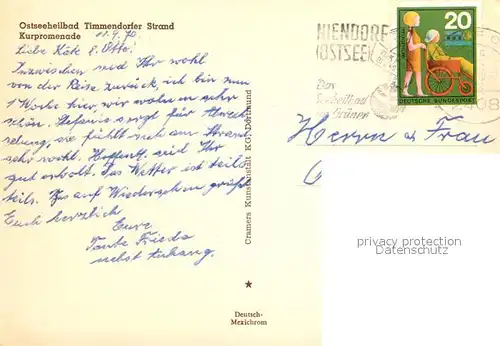 Ostseeheilbad Timmendorfer Strand
Kurpromenade 11.9.70.
Liebe Käte & Otto!
Inzwischen seid Ihr wohl
von der Reise zurück ich bin nun
1 Woche hier, wir wohnen sehr
schön. Stefanie sorgt für Abwech
selung, sie fühlt sich am Strand
sehr wohl. Hoffentl. seid Ihr
gut erholt. Das Wetter ist teils
teils. Bis auf Wiedersehen grüßt
Euch herzlich
Eure
Tante Frieda
nebst Anhang.
Cramers Kunstanstalt KG·Dortmund
★
Deutsch-
Mexichrom
NIENDORF
(OSTSEE)
Das
Seeheilbad
im Grünen
2408
20
DEUTSCHE BUNDESPOST
Herrn u. Frau
privacy protection
Datenschutz